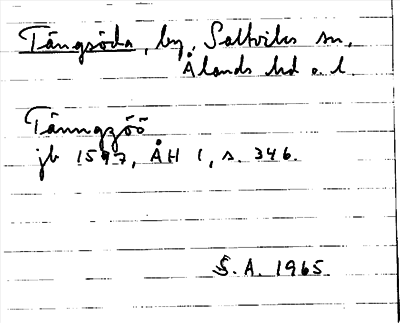 Tängsöda, by, Saltviks sn,
Ålands hd o. l.
Tänngzöö
jb 1597, ÅH 1, s. 346.
S. A. 1965